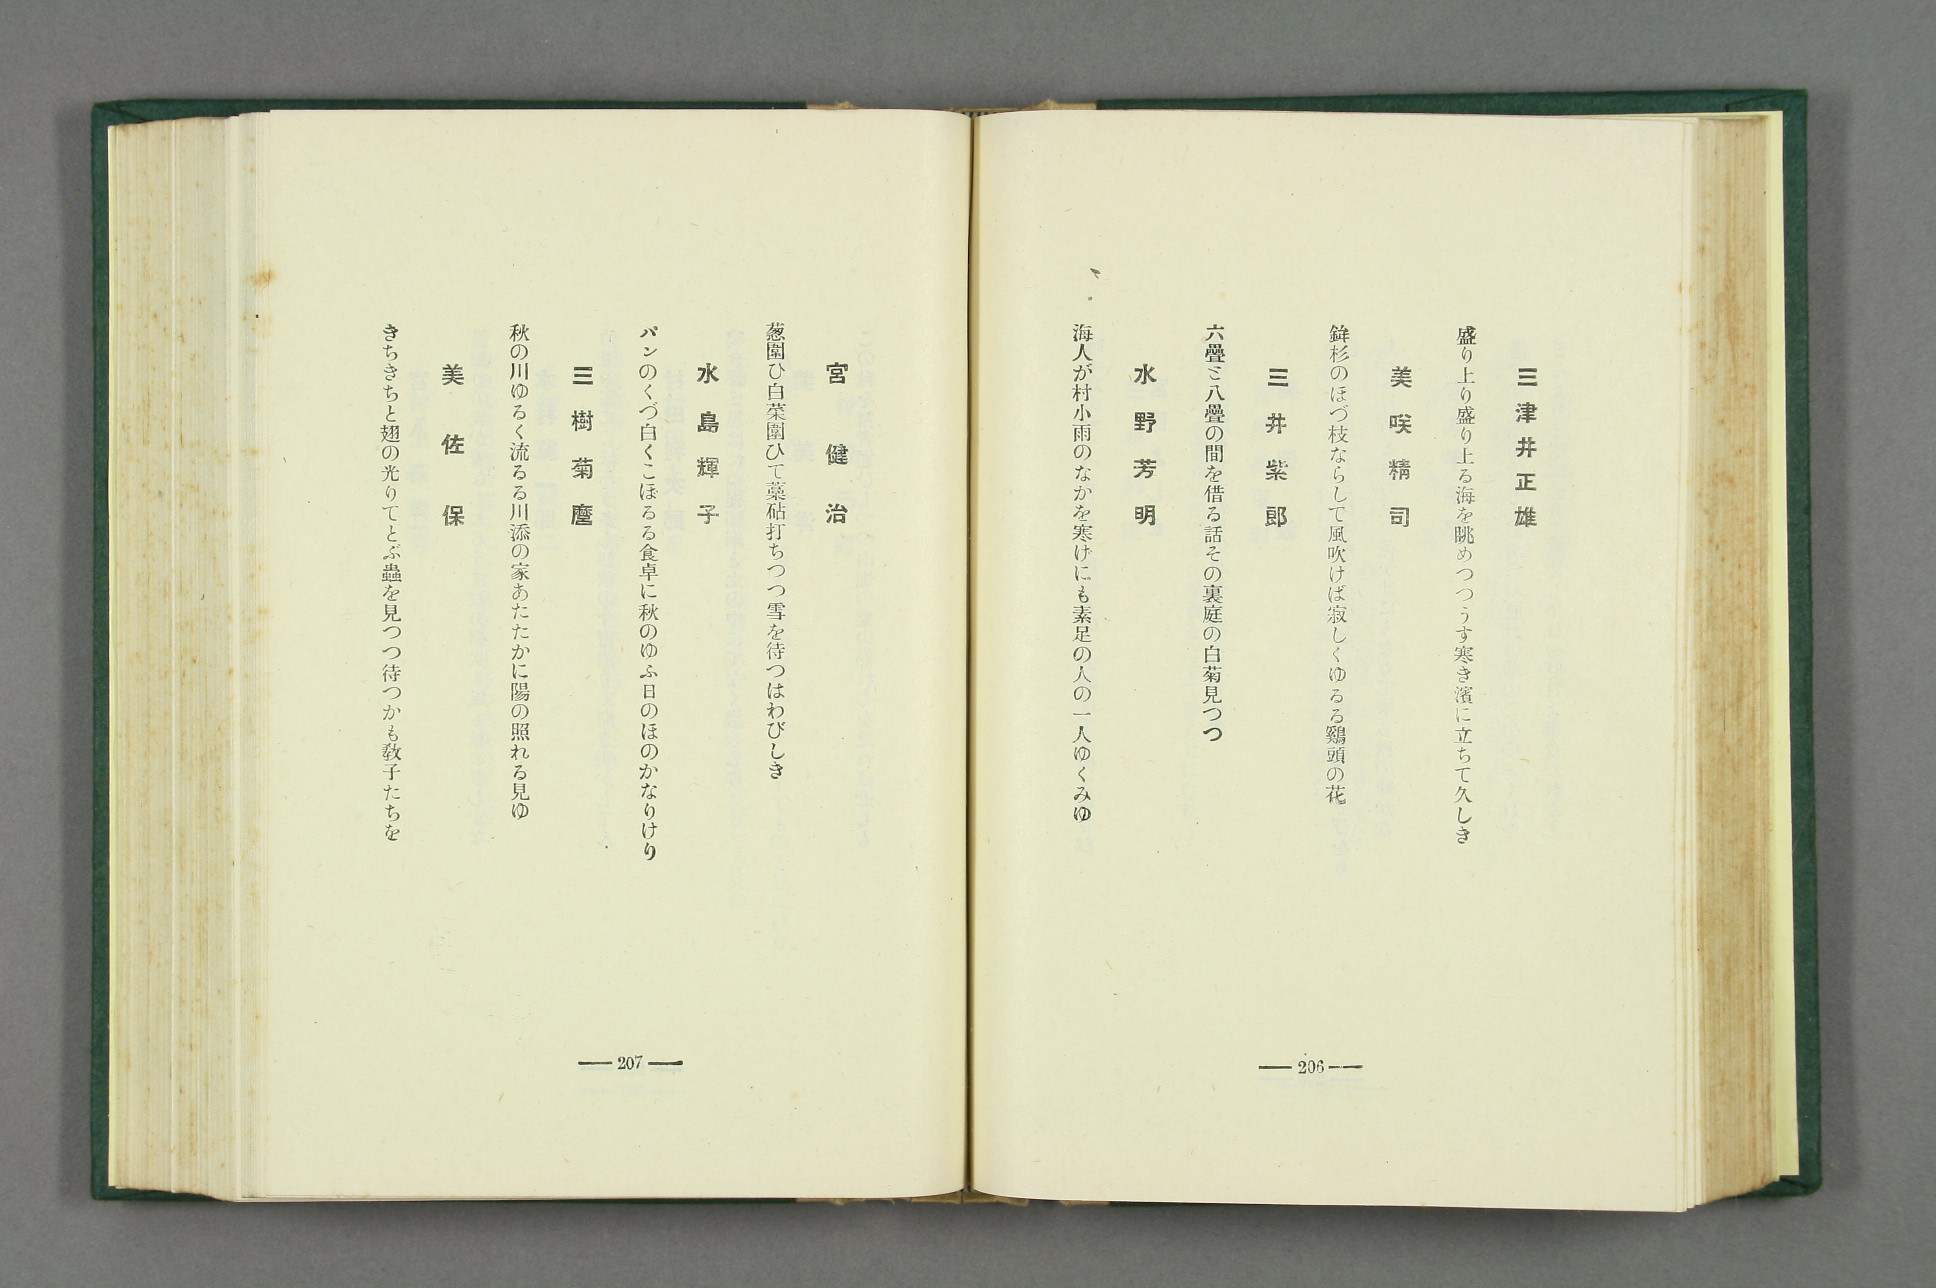 三津井正雄
盛り上り盛り上る海を眺めつつうす寒き濱に立ちて久しき
美咲精司
鉾杉のほづ枝ならして風吹けば寂しくゆるる鷄頭の花
三井紫郎
六疊と八疊の間を借る話その裏庭の白菊見つつ
水野芳明
海人が村小雨のなかを寒げにも素足の人の一人ゆくみゆ
— 206 —
宮健治
葱圍ひ白菜圍ひて藁砧打ちつつ雪を待つはわびしき
水島輝子
パンのくづ白くこぼるる食卓に秋のゆふ日のほのかなりけり
三樹菊麿
秋の川ゆるく流るる川添の家あたたかに陽の照れる見ゆ
美佐保
きちきちと翅の光りてとぶ蟲を見つつ待つかも敎子たちを
— 207 —